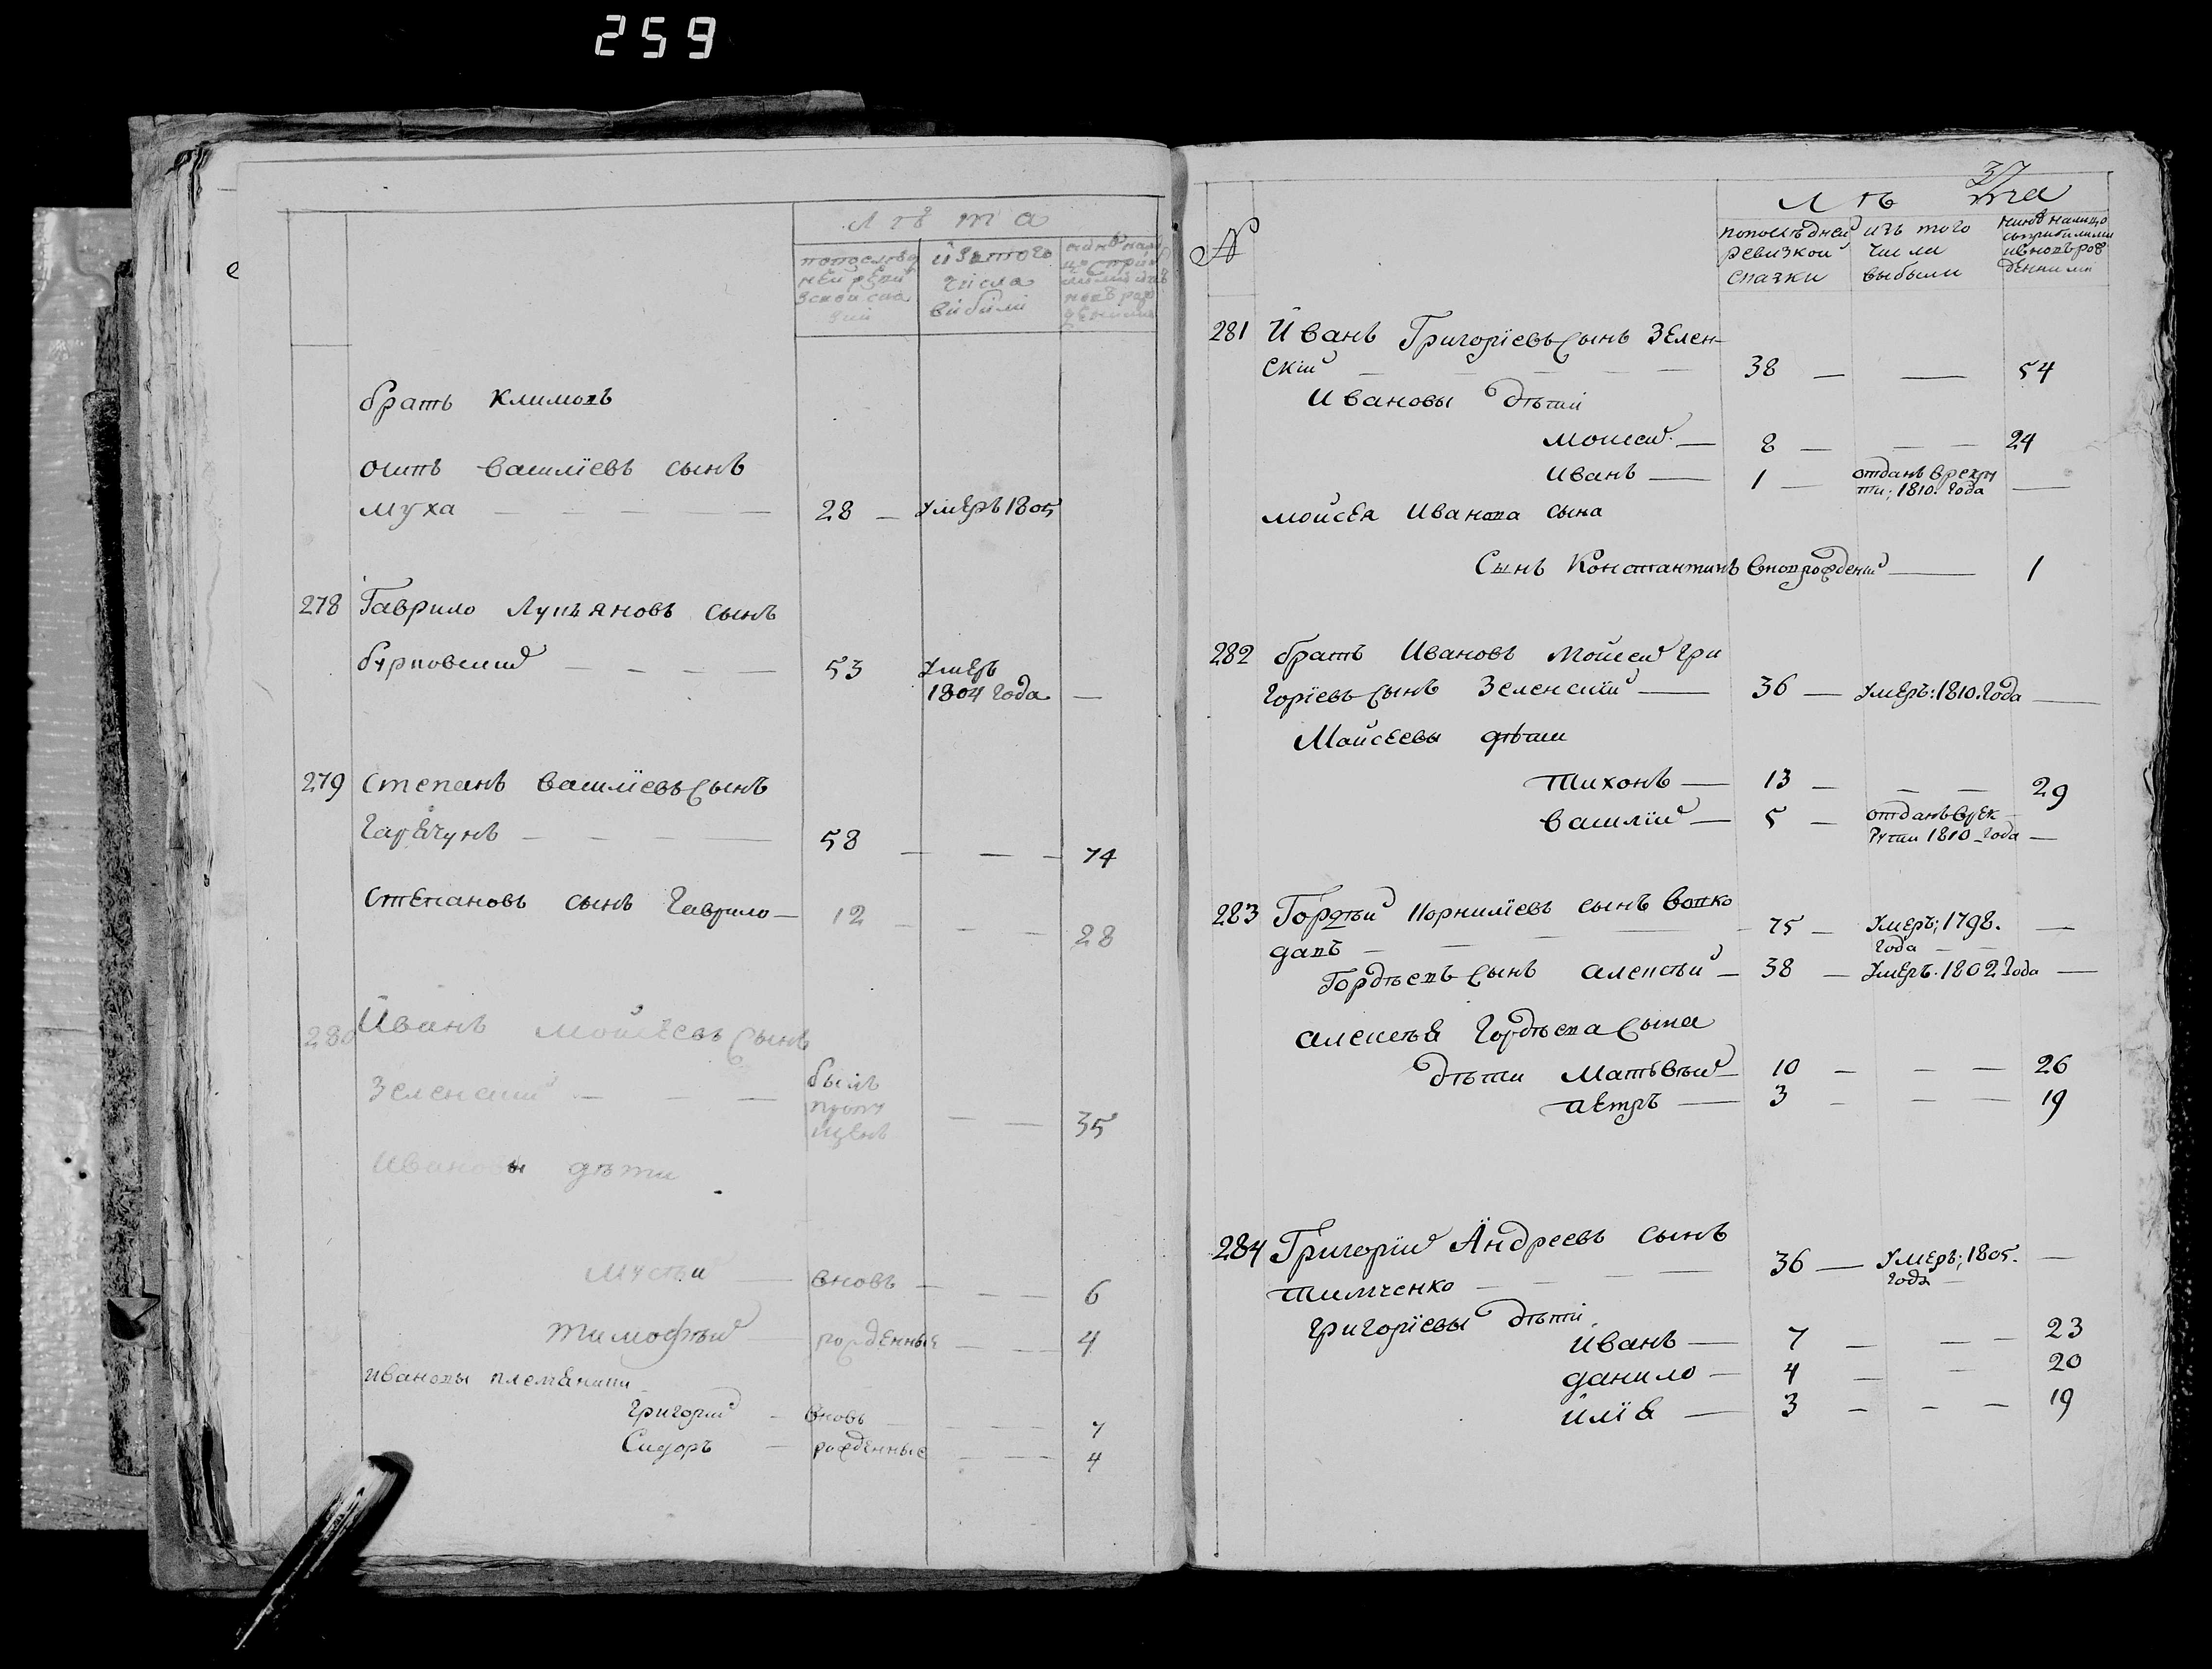 259
Лѣта
попослѣд
ней реви
зской ска
зки
изътого
числа
выбыли
братъ Климовъ
осипъ Василіевъ сынъ
муха 28 умеръ 1805
278 Гаврило Лупьяновъ сынъ
53 умеръ
1804 года
279 Степанъ Василіевъ сынъ
58 74
Степановъ сынъ Гаврило 12 28
280 Иванъ Мойсѣевъ сынъ
Зеленский былъ
пропу
щенъ 35
Ивановы дѣти
вновь 6
Тимофѣй рожденные 4
Ивановы племѣники
Григорий вновь 7
Сидоръ рожденные 4
37
Лѣта
№ попослѣдней изъ того нынѣ налицо
ревизкой числа съприбылыми
сказки выбыли ивновърож
денными
281 Иванъ Григоріевъ сынъ Зелен
скій 38 54
Ивановы дѣти
Мойсей 8 24
Иванъ 1 отданъ врекру
ти; 1810. года
мойсея Иванова сына
Сынъ Константинъ вноврожденій 1
282 братъ Ивановъ Мойсей Гри
горіевъ сынъ Зеленскій 36 умеръ: 1810. года
Мойсеевы дѣти
Тихонъ 13 29
Василій 5 отданъ врек
рути 1810 года
283 Гордѣй Корниліевъ сынъ Вовко
давъ 75 умеръ; 1798.
года
Гордѣевъ сынъ алексѣй 38 умеръ. 1802 года
алексѣя Гордѣева сына
дѣти Матьвѣй 10 26
петръ 3 19
284 Григорій Андреевъ сынъ
Тимченко 36 умеръ; 1805.
года
Григоріевы дѣти
Иванъ 7 23
данило 4 20
илія 3 19